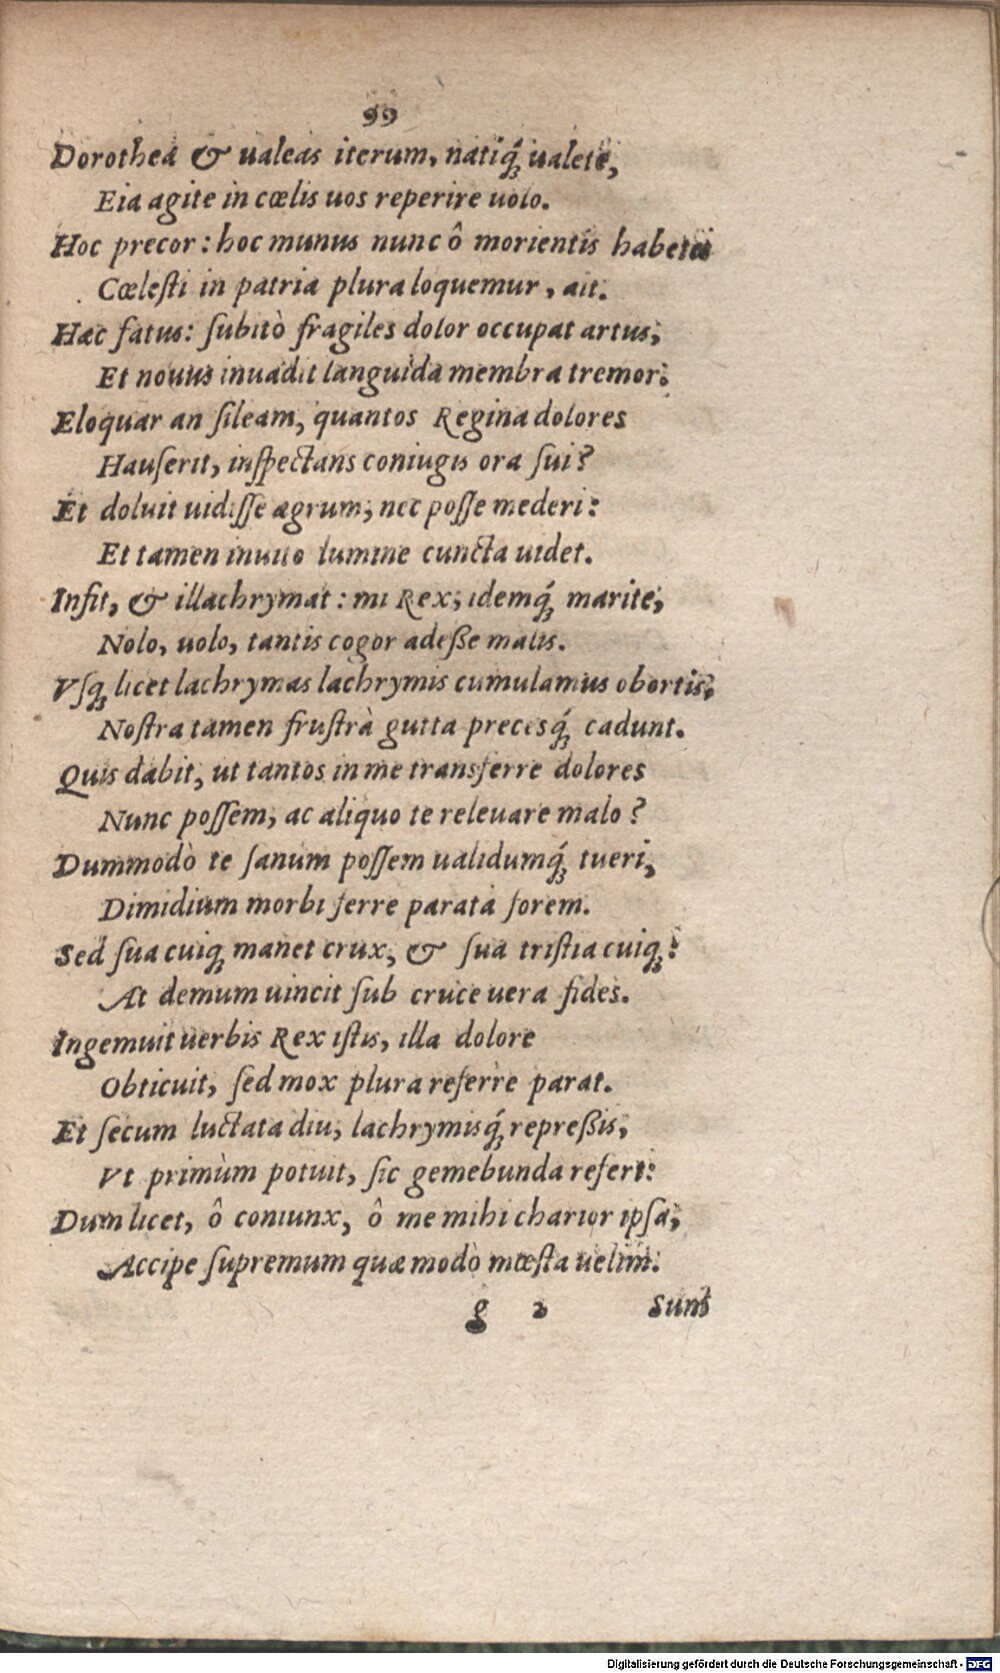 99
Dorothea & ualeas iterum, natiq́; ualete,
Eia agite in cœlis uos reperire uolo.
Hoc precor: hoc munus nunc ô morientis habete:
Cœlesti in patria plura loquemur, ait.
Hæc fatus: subitò fragiles dolor occupat artus,
Et nouus inuadit languida membra tremor.
Eloquar an sileam, quantos Regina dolores
Hauserit, inspectans coniugis ora sui?
Et doluit uidisse ægrum, nec posse mederi:
Et tamen inuito lumine cuncta uidet.
Infit, & illachrymat: mi Rex, idemq́; marite,
Nolo, uolo, tantis cogor adeße malis.
Vsq; licet lachrymas lachrymis cumulamus obortis,
Nostra tamen frustrà gutta precesq́; cadunt.
Quis dabit, ut tantos in me transferre dolores
Nunc possem, ac aliquo te releuare malo?
Dummodò te sanum possem ualidumq́; tueri,
Dimidium morbi ferre parata forem.
Sed sua cuiq; manet crux, & sua tristia cuiq;:
At demum uincit sub cruce uera fides.
Ingemuit uerbis Rex istis, illa dolore
Obticuit, sed mox plura referre parat.
Et secum luctata diu, lachrymisq́; repreßis,
Vt primùm potuit, sic gemebunda refert:
Dum licet, ô coniunx, ô me mihi charior ipsa,
Accipe supremum quæ modò mœsta uelim.
g 2 Sunt
Digitalisierung gefördert durch die Deutsche Forschungsgemeinschaft - DFG